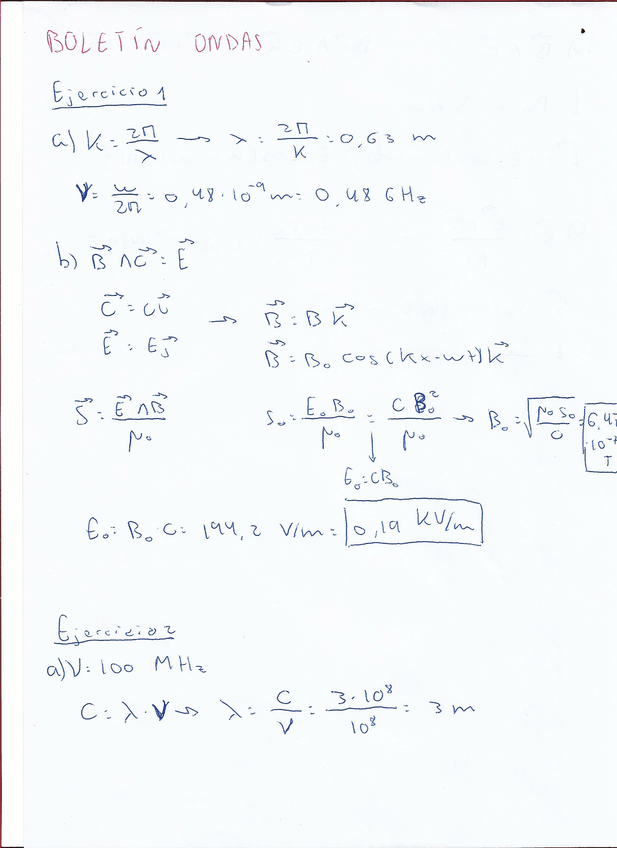 BOLETÍN ONDAS
Ejercicio 1
a) K = 2π/λ → λ = 2π/K = 0,63 m
ν = w/2π = 0,48·10⁻⁹ m = 0,48 GHz
b) B⃗ ∧ C⃗ = E⃗
C⃗ = C i⃗ → B⃗ = B K⃗
E⃗ = E j⃗
B⃗ = B₀ cos(kx-wt) K⃗
S⃗ = E⃗ ∧ B⃗ / μ₀ S₀ = E₀ B₀ / μ₀ = C B₀² / μ₀ → B₀ = √(μ₀ S₀ / C) =
E₀ = C B₀
E₀ = B₀ · C = 194,2 V/m = 0,19 KV/m
Ejercicio 2
a) ν = 100 MHz
C = λ · ν → λ = C/ν = 3·10⁸/10⁸ = 3 m